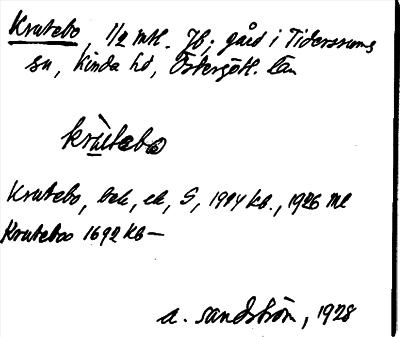 Krutebo, 1/2 mtl. Jb; gård i Tidersrums
sn, Kinda hd, Östergötl. län
krùtebo
Krutebo, bok, ek, S, 1904 kb., 1926 ml
Kruteboo 1692 kb —
A. Sandström, 1928